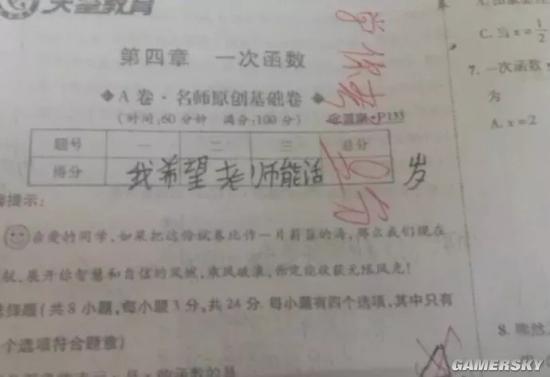 天星教育
第四章 一次函数
◆A卷·名师原创基础卷◆
(时间:60分钟 满分:100分) 答案:P133
题号 一 二 三 总分
得分 我希望老师能活 岁
提示:
亲爱的同学,如果把这份试卷比作一片蔚蓝的海,那么我们现在
航,展开你智慧和自信的风帆,乘风破浪,你定能收获无限风光!
选择题(共8小题,每小题3分,共24分.每小题有四个选项,其中只有
个选项符合题意)
C. 当x=1/2
7. 一次函数
为
A. x=2
8.
GAMERSKY